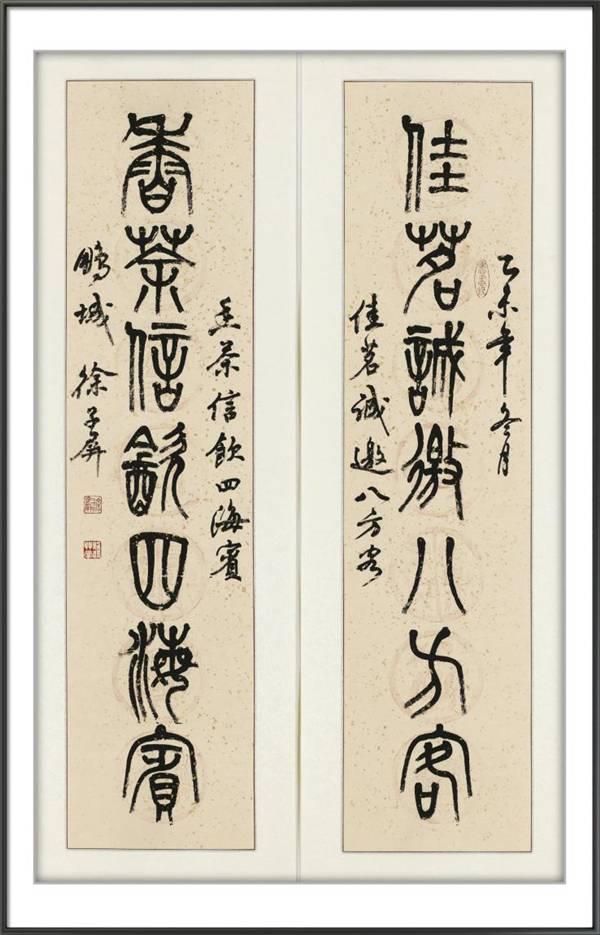 乙未年冬月
佳茗誠邀八方客
佳茗誠邀八方客
香茶信飲四海賓
香茶信飲四海賓
鵬城 徐子屏